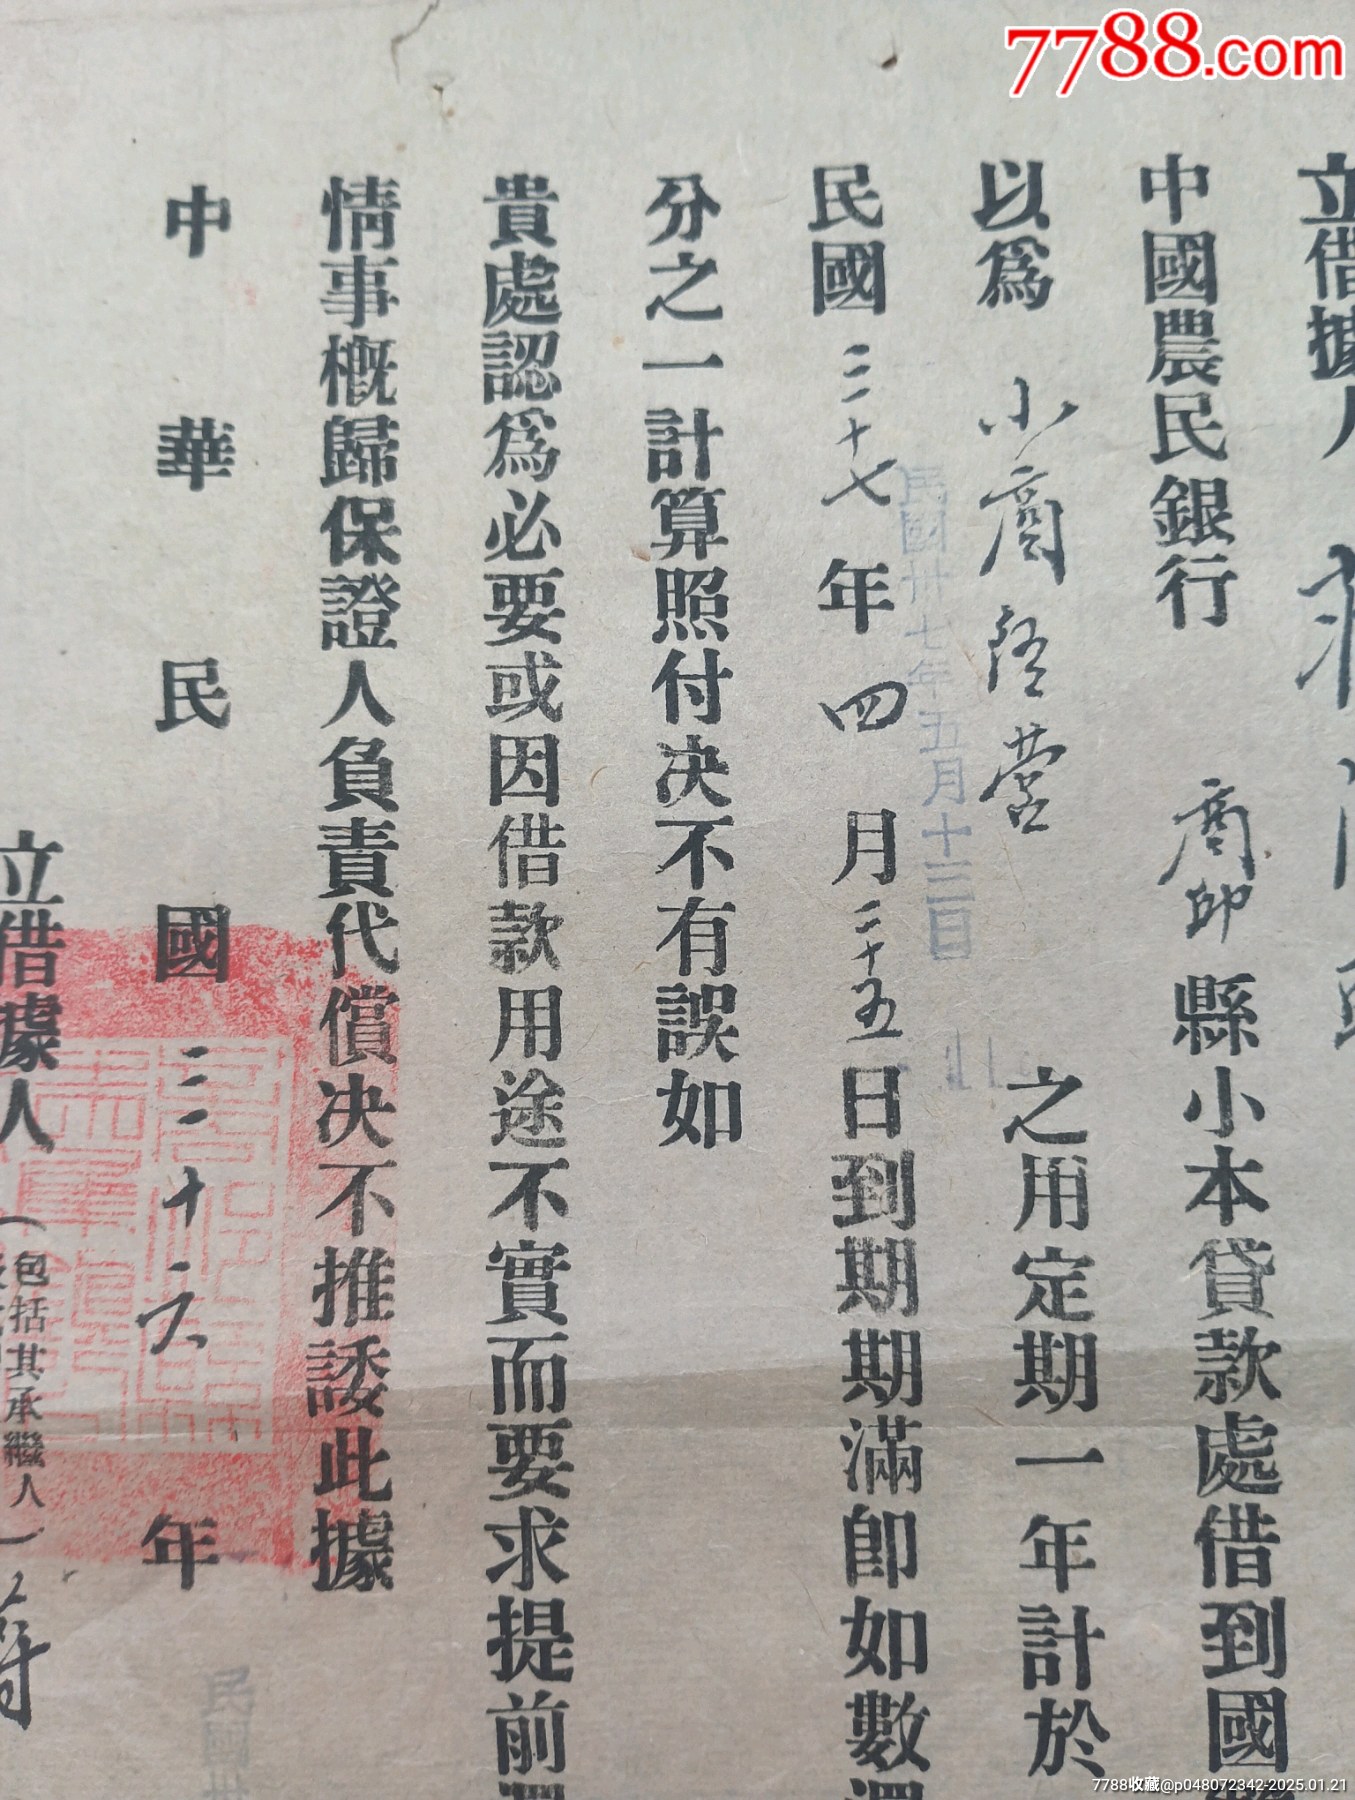 7788.com
立借據人
中國農民銀行 商邱 縣小本貸款處借到國
以爲 小商經營 之用定期一年計於
民國 三十七 年 四 月 二十五 日到期期滿即如數還
民國卅七年五月十二日
分之一計算照付决不有誤如
貴處認爲必要或因借款用途不實而要求提前
情事概歸保證人負責代償决不推諉此據
中華民國 三十六 年
立借據人(包括其承繼人)蔣
民國卅
7788收藏@p048072342-2025.01.21